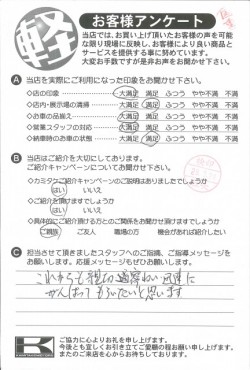 軽
お客様アンケート
当店では、お買い上げ頂いたお客様の声を可能
な限り現場に反映し、お客様により良い商品と
サービスを提供する事に努めています。
大変お手数ですが是非お声をお聞かせ下さい。
A 当店を実際にご利用になった印象をお聞かせ下さい。
◇店の印象 大満足 満足 ふつう やや不満 不満
◇店内・展示場の清掃 大満足 満足 ふつう やや不満 不満
◇お車の品揃え 大満足 満足 ふつう やや不満 不満
◇営業スタッフの対応 大満足 満足 ふつう やや不満 不満
◇納車時のお車の状態 大満足 満足 ふつう やや不満 不満
B 当店はご紹介を大切にしております。
ご紹介キャンペーンについてお聞かせ下さい。
◇カミタケご紹介キャンペーンのご説明はありましたでしょうか
はい いいえ
◇ご紹介を頂けますでしょうか
はい いいえ
◇具体的にご紹介頂ける方とのご関係をお聞かせ頂けますでしょうか
ご親族 ご友人 職場の方 機会があれば紹介したい
C 担当させて頂きましたスタッフへのご指摘、ご指導メッセージを
お願いします。応援メッセージもぜひお願いします。
これからも親切
がんばってもらいたいと思います
ご協力に心よりお礼を申し上げます。
今後とも宜しくお引き立てご愛顧の程お願い申し上げます。
またのご来店を心からお待ちしております。